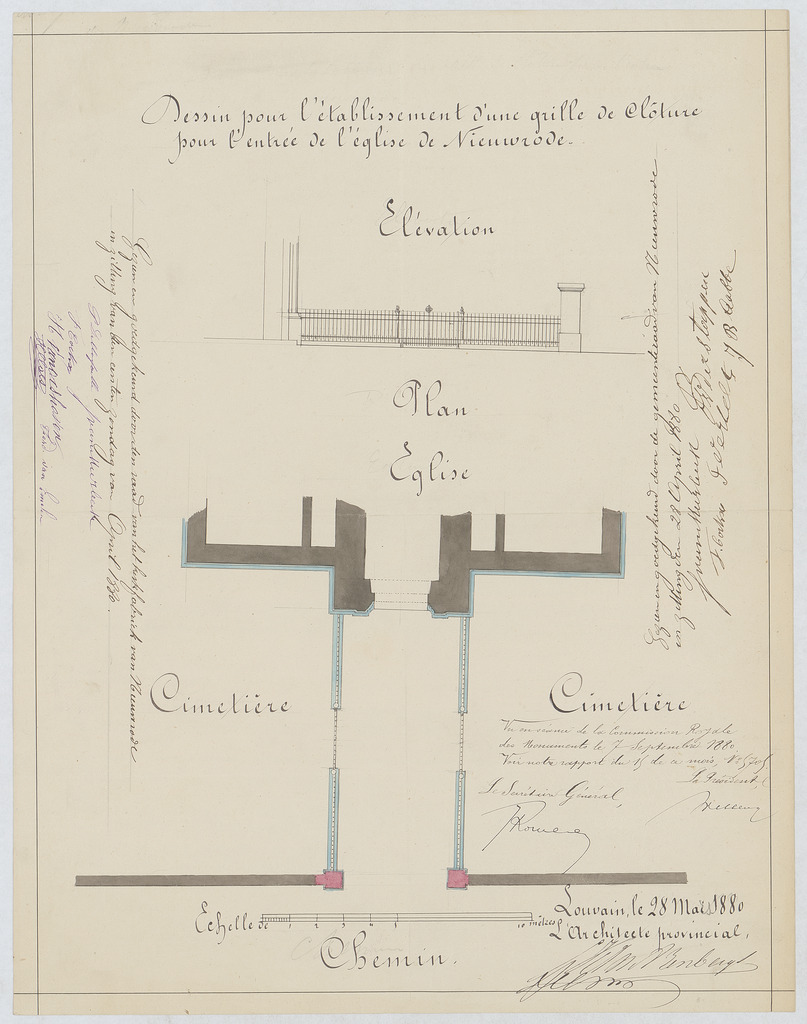 Dessin pour l'établissement d'une grille de Clôture
pour l'entrée de l'église de Nieuwrode.
Elévation
Plan
Eglise
Cimetière
Cimetière
Gezien en goedgekeurd door den raad van het kerkfabriek van Nieuwrode
in zitting van den eersten zondag van April 1880.
Gezien en goedgekeurd door de gemeenteraad van Nieuwrode
in zitting den 28 April 1880
Vu en séance de la Commission Royale
des Monuments le 7 Septembre 1880.
Voir notre rapport du 15 de ce mois, N°
Le Président
Le Secrétaire Général,
Echelle de 1 2 3 4 5 10 mètres
Louvain, le 28 Mars 1880
L'Architecte provincial,
Chemin.